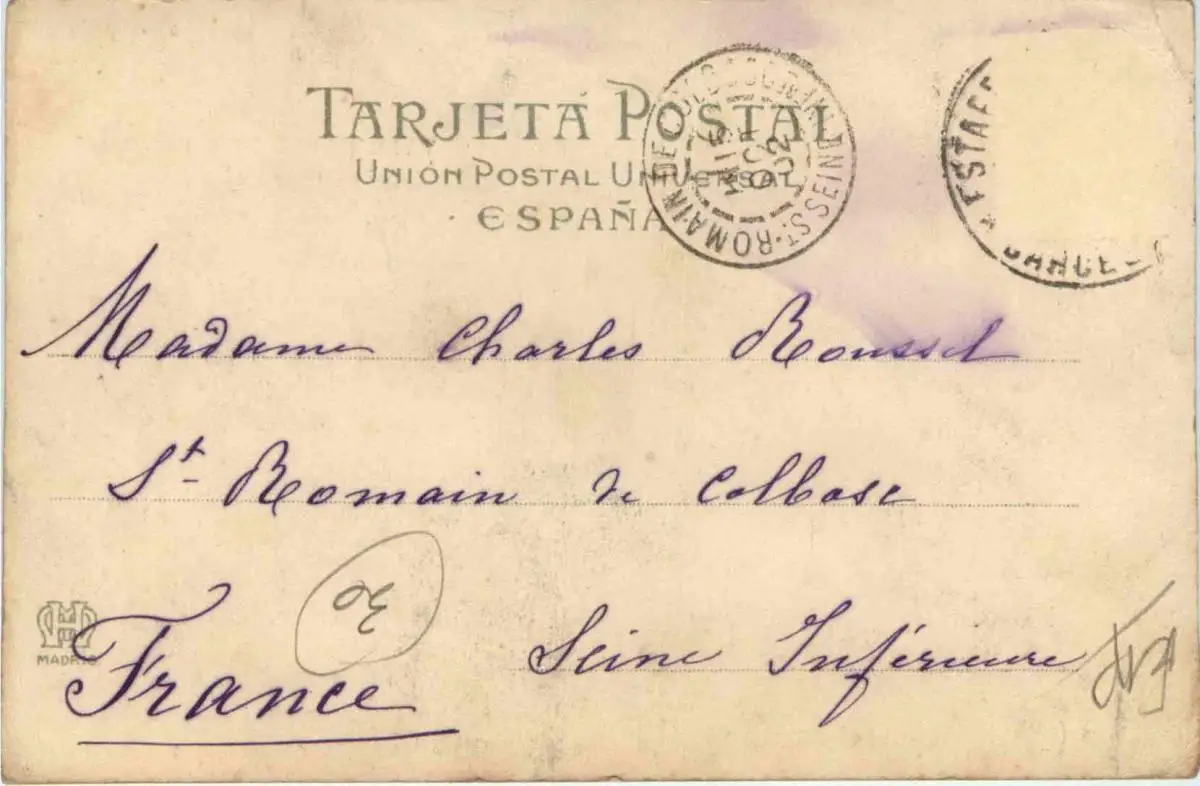 TARJETA POSTAL
UNIÓN POSTAL UNIVERSAL
ESPAÑA
ST-ROMAIN DE COLBOSC SEINE INFRE
15
OCT
02
ESTAFE
BARCEL
Madame Charles Roussel
St- Romain de Colbosc
France
Seine Inférieure
MADRID